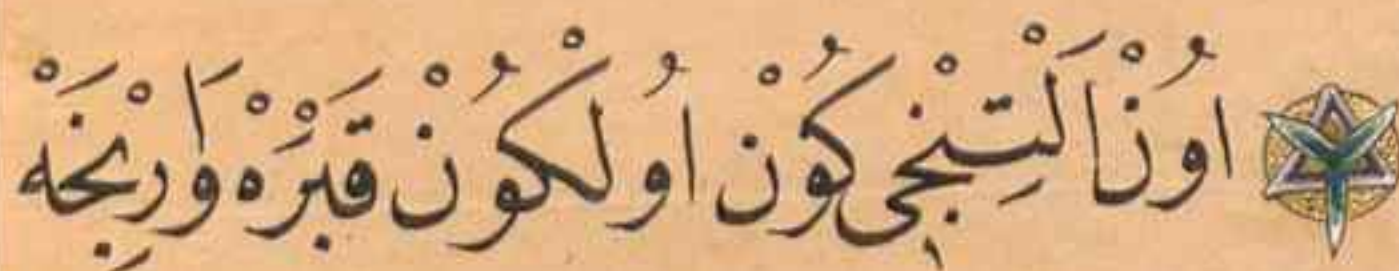 اُونْ اَلْتِنْجِی كُونْ اُولْكُونْ قَبْرَهْ وَارِنْجَهْ